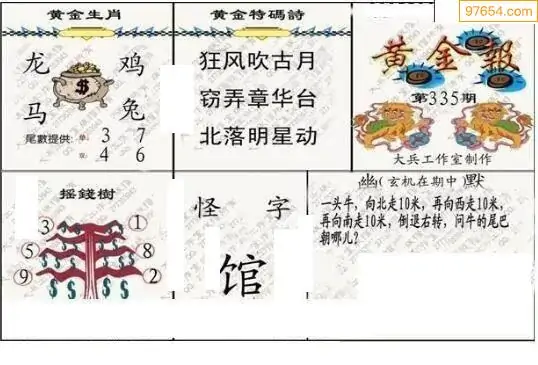 97654.com
黄金生肖
龙 鸡
马 兔
尾數提供: 单: 3 7
双: 4 6
黄金特碼詩
狂风吹古月
窃弄章华台
北落明星动
黄金報
第335期
大兵工作室制作
摇錢樹
3 1
5 8
9 2
怪 字
馆
幽(玄机在期中 默
一头牛，向北走10米，再向西走10米，
再向南走10米，倒退右转，问牛的尾巴
朝哪儿？